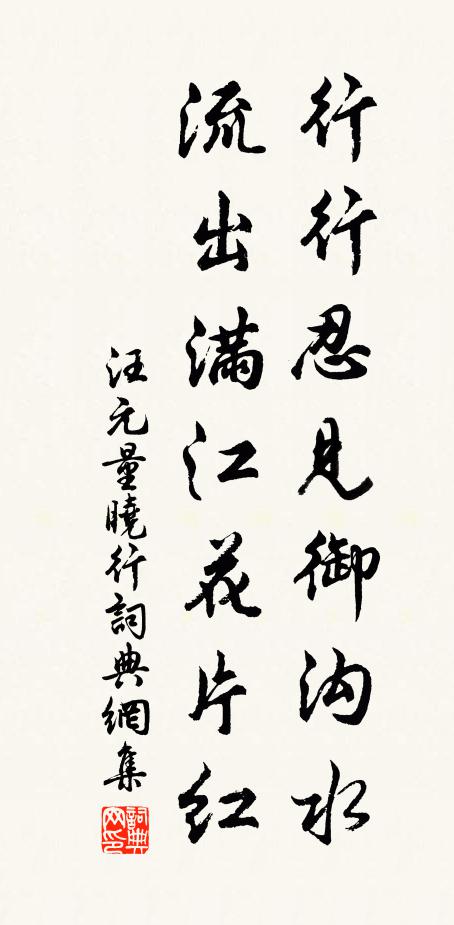 行行忍見御沟水
流出滿江花片红
汪元量曉行詞典網集
詞典网印